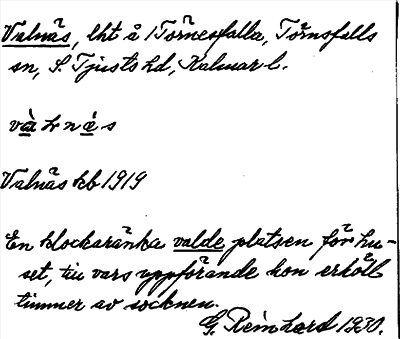 Valnäs, lht å Törnesfalla, Törnsfalls
sn, S. Tjusts hd, Kalmar l.
Valnäs kb 1919
En klockaränka valde platsen för hu-
set, till vars uppförande hon erhöll
timmer av socknen.
G. Reinhard 1930.